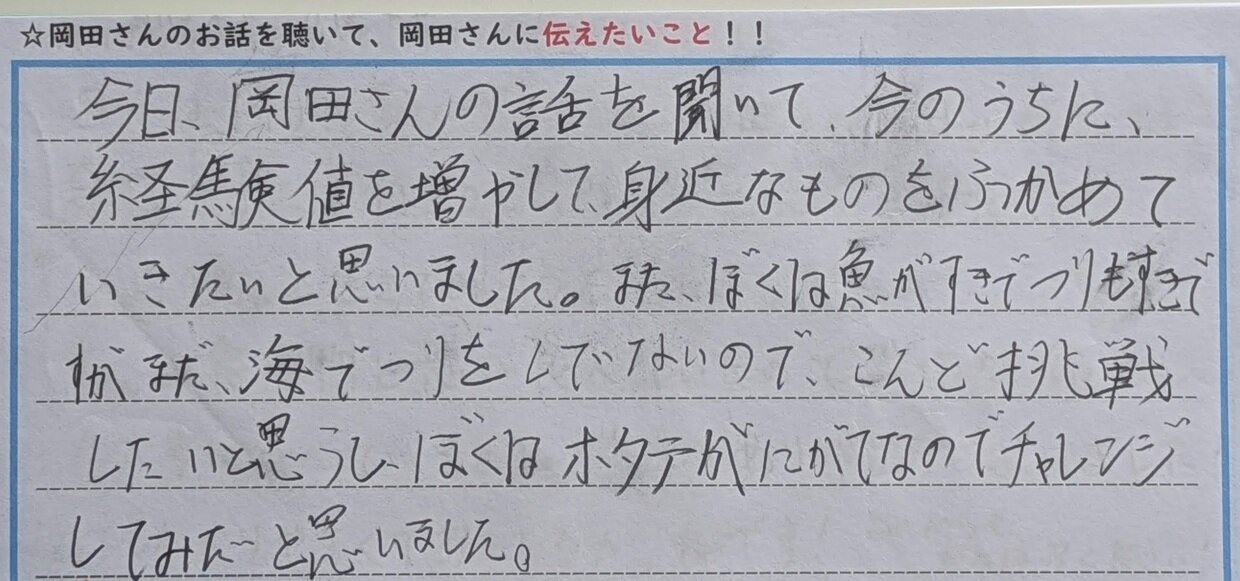 ☆岡田さんのお話を聴いて、岡田さんに伝えたいこと！！
今日、岡田さんの話を聞いて、今のうちに、
経験値を増やして、身近なものをふかめて
いきたいと思いました。また、ぼくは魚がすきでつりもすきで
すがまだ、海でつりをしでいないので、こんど挑戦
したいと思うし、ぼくはホタテがにがてなのでチャレンジ
してみたいと思いました。